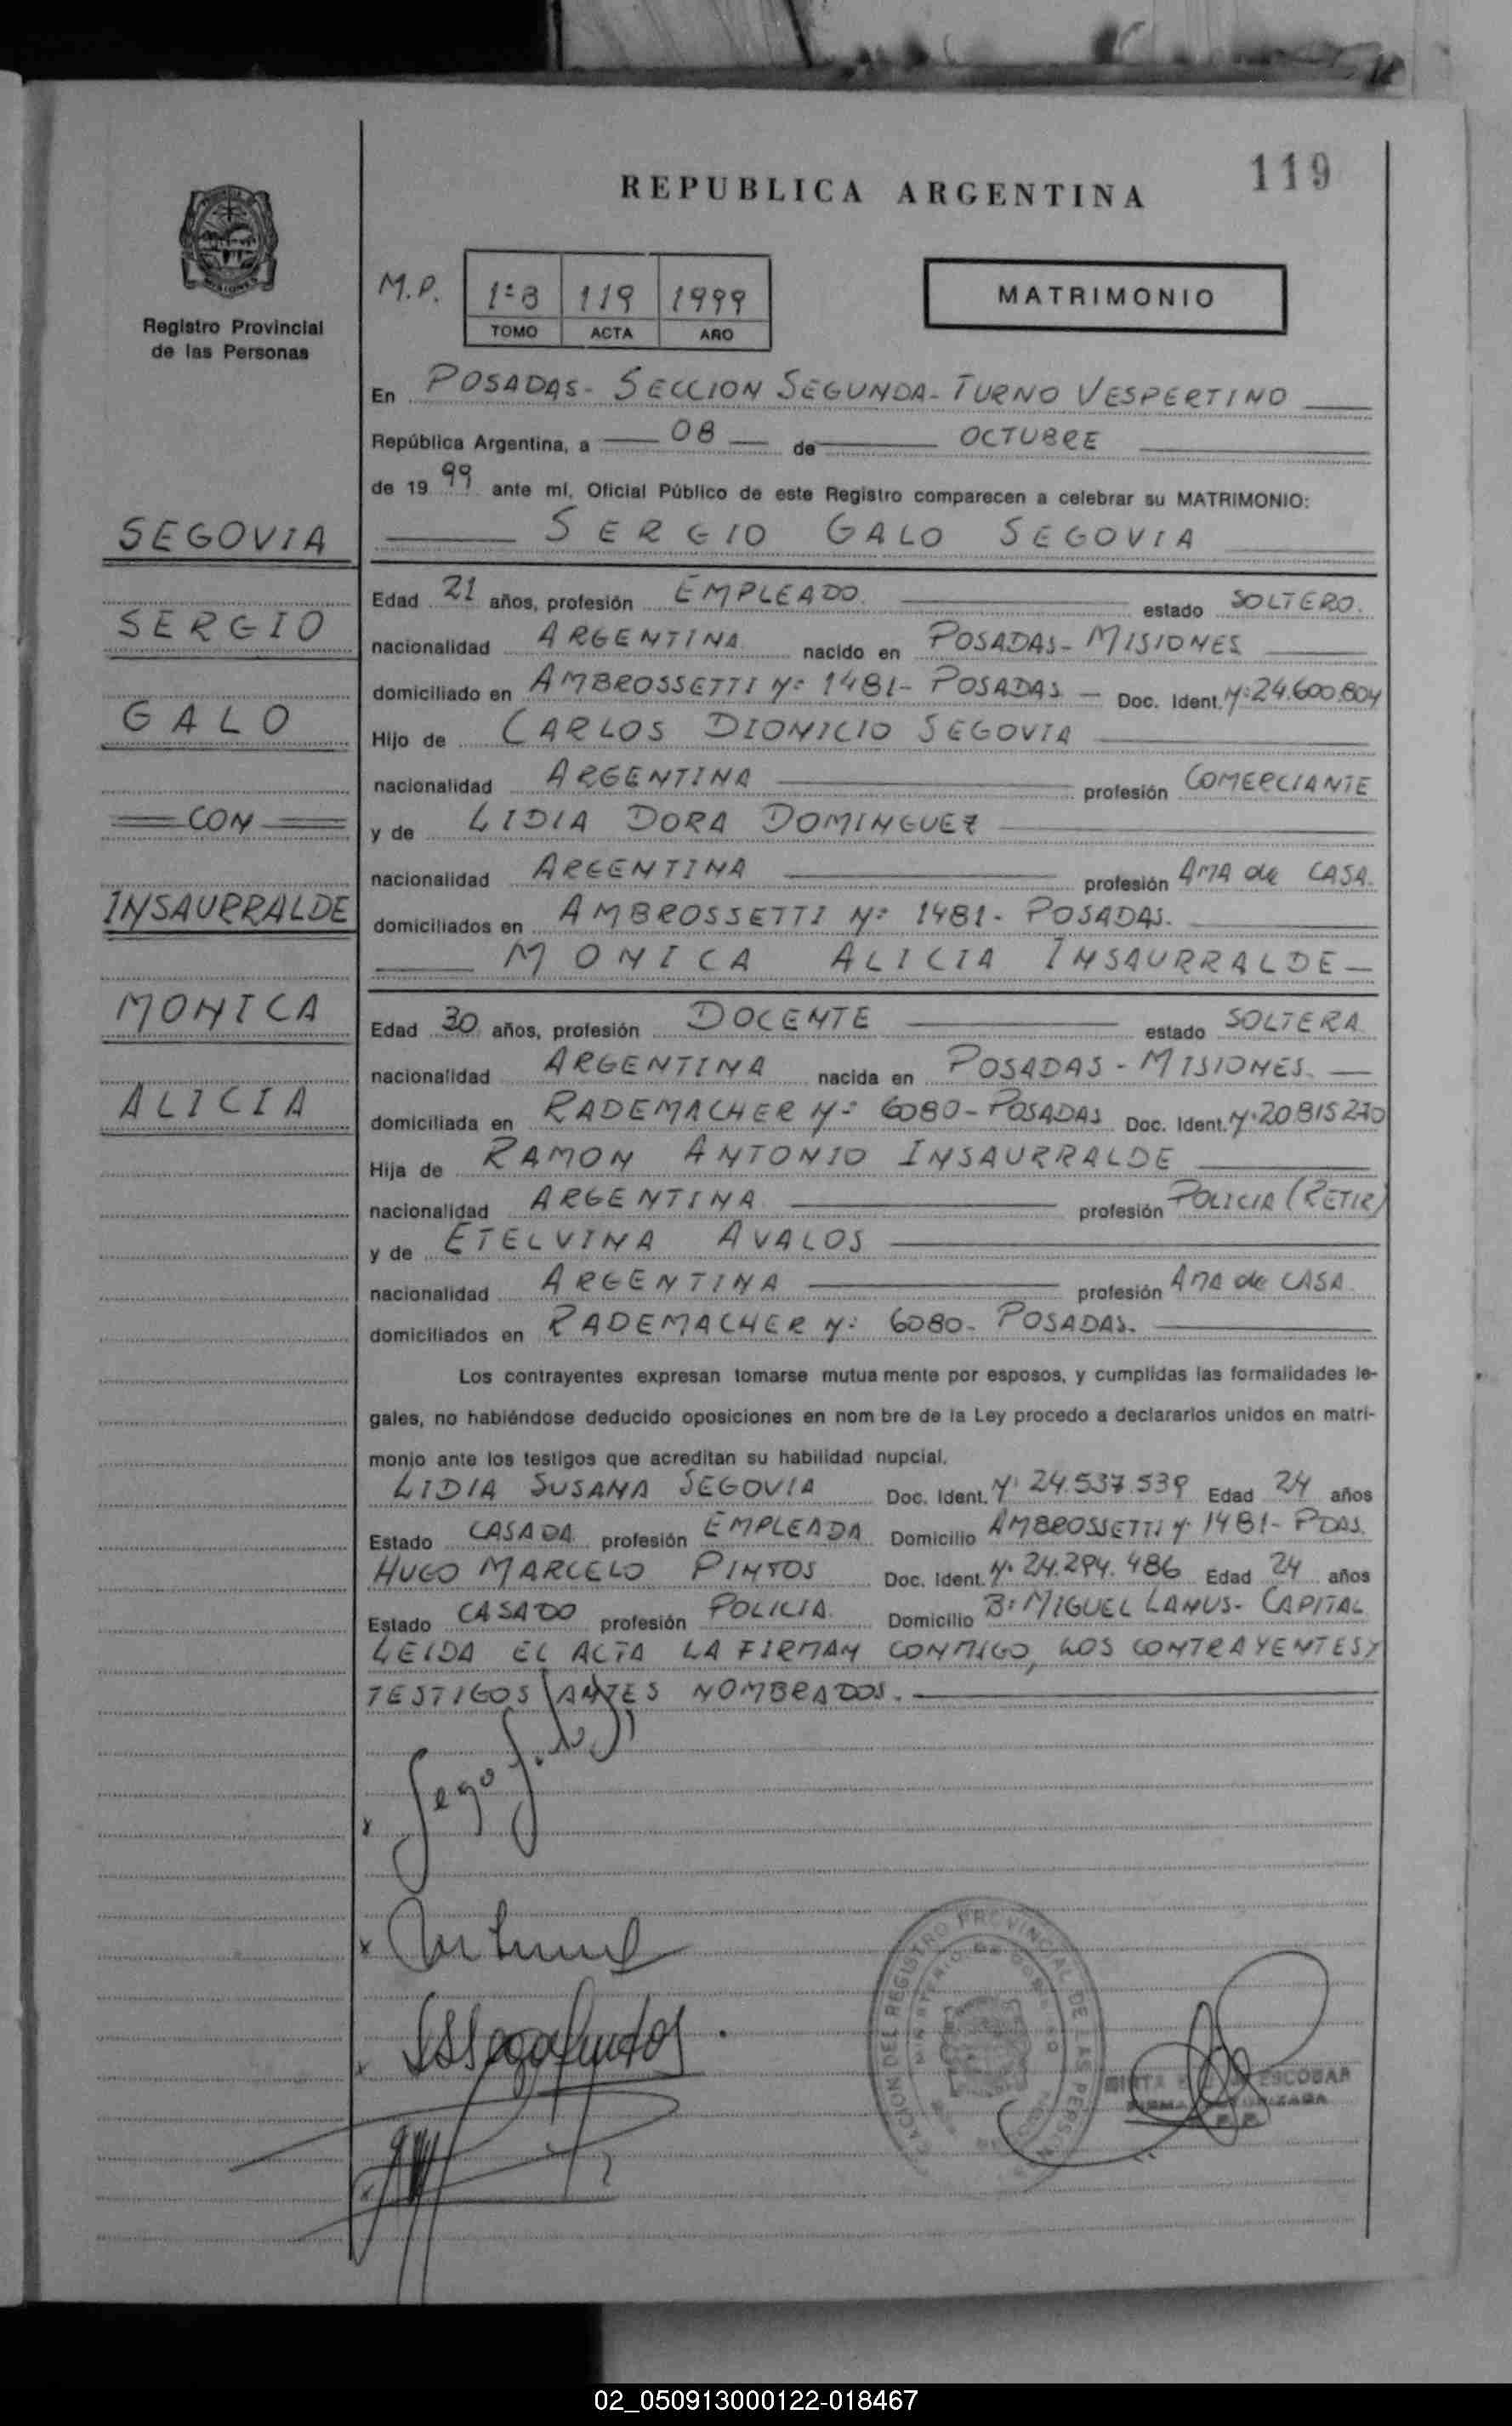 119
REPUBLICA ARGENTINA
Registro Provincial
de las Personas
M.P. 1º B 119 1999
TOMO ACTA AÑO
MATRIMONIO
En POSADAS - SECCION SEGUNDA - TURNO VESPERTINO
República Argentina, a 08 de OCTUBRE
de 19 99 ante mí, Oficial Público de este Registro comparecen a celebrar su MATRIMONIO:
SEGOVIA
SERGIO GALO SEGOVIA
Edad 21 años, profesión EMPLEADO. estado SOLTERO.
SERGIO
nacionalidad ARGENTINA nacido en POSADAS - MISIONES
domiciliado en AMBROSSETTI Nº 1481 - POSADAS - Doc. Ident. Nº 24.600.804
GALO
Hijo de CARLOS DIONICIO SEGOVIA
nacionalidad ARGENTINA profesión COMERCIANTE
CON
y de LIDIA DORA DOMINGUEZ
nacionalidad ARGENTINA profesión AMA de CASA.
INSAURRALDE
domiciliados en AMBROSSETTI Nº 1481 - POSADAS.
MONICA ALICIA INSAURRALDE
MONICA
Edad 30 años, profesión DOCENTE estado SOLTERA
nacionalidad ARGENTINA nacida en POSADAS - MISIONES.
ALICIA
domiciliada en RADEMACHER Nº 6080 - POSADAS Doc. Ident. Nº 20.815.270
Hija de RAMON ANTONIO INSAURRALDE
nacionalidad ARGENTINA profesión POLICIA (RETIR)
y de ETELVINA AVALOS
nacionalidad ARGENTINA profesión AMA de CASA.
domiciliados en RADEMACHER Nº 6080 - POSADAS.
Los contrayentes expresan tomarse mutua mente por esposos, y cumplidas las formalidades le-
gales, no habiéndose deducido oposiciones en nom bre de la Ley procedo a declararlos unidos en matri-
monio ante los testigos que acreditan su habilidad nupcial.
LIDIA SUSANA SEGOVIA Doc. Ident. Nº 24.537.539 Edad 24 años
Estado CASADA profesión EMPLEADA Domicilio AMBROSSETTI Nº 1481 - PDAS.
HUGO MARCELO PINTOS Doc. Ident. Nº 24.294.486 Edad 24 años
Estado CASADO profesión POLICIA. Domicilio Bº MIGUEL LANUS - CAPITAL
LEIDA EL ACTA LA FIRMAN CONMIGO, LOS CONTRAYENTES Y
TESTIGOS ANTES NOMBRADOS.
REGISTRO PROVINCIAL DE LAS PERSONAS
MINISTERIO DE GOBIERNO
ESCOBAR
02_050913000122-018467